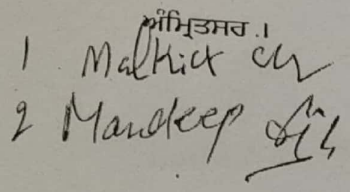 ਅੰਮ੍ਰਿਤਸਰ ।
1 Malkict
2 Mandeep